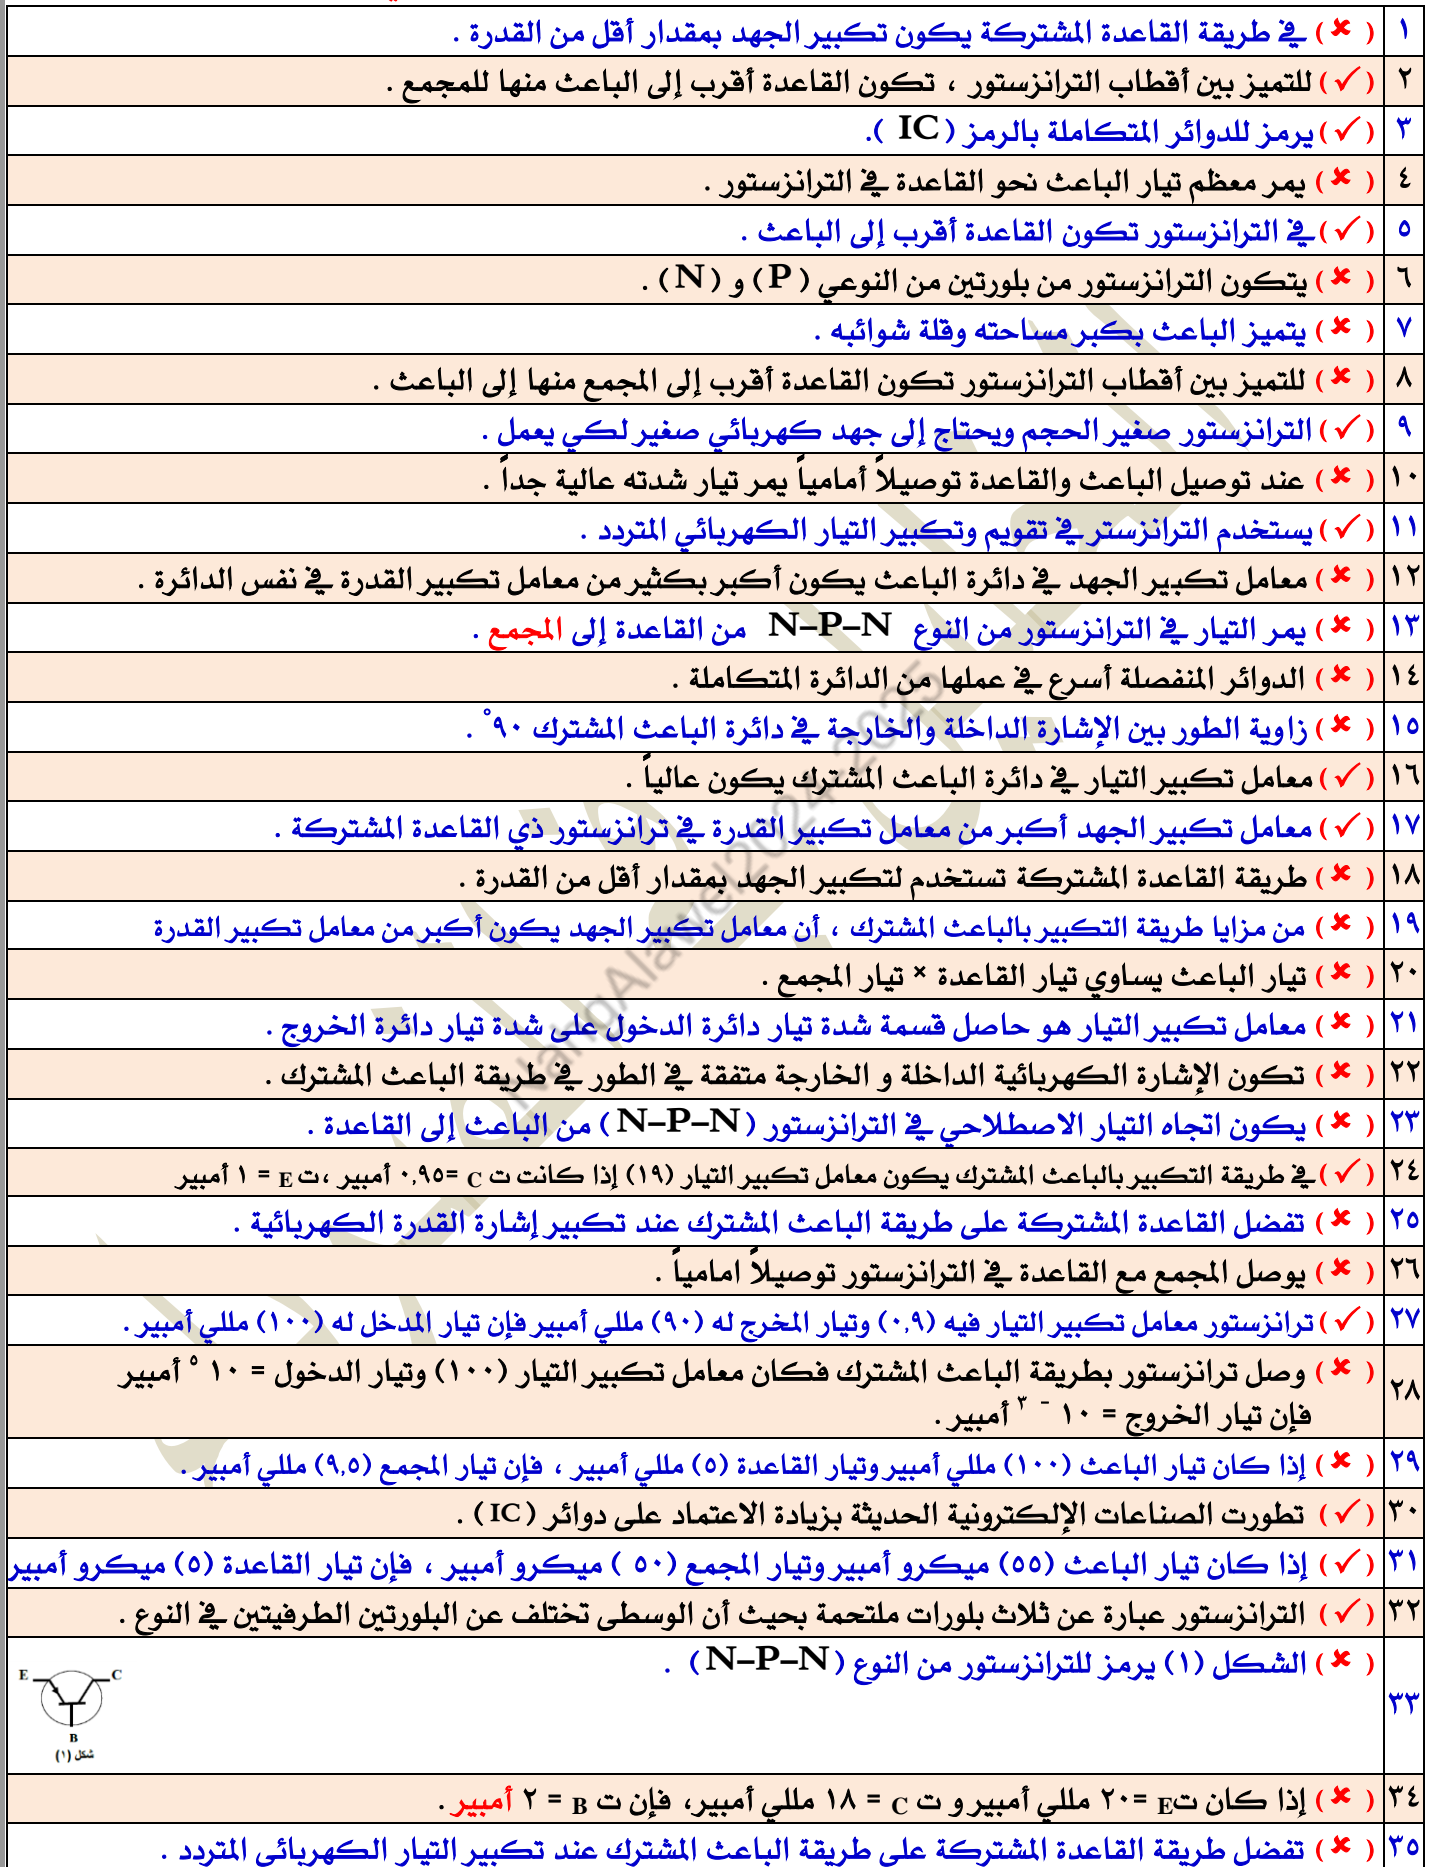 ١ ( ✘ ) في طريقة القاعدة المشتركة يكون تكبير الجهد بمقدار أقل من القدرة .
٢ (✓) للتميز بين أقطاب الترانزستور ، تكون القاعدة أقرب إلى الباعث منها للمجمع .
٣ (✓) يرمز للدوائر المتكاملة بالرمز ( IC ).
٤ ( ✘ ) يمر معظم تيار الباعث نحو القاعدة في الترانزستور .
٥ (✓) في الترانزستور تكون القاعدة أقرب إلى الباعث .
٦ ( ✘ ) يتكون الترانزستور من بلورتين من النوعي ( P ) و ( N ) .
٧ ( ✘ ) يتميز الباعث بكبر مساحته وقلة شوائبه .
٨ ( ✘ ) للتميز بين أقطاب الترانزستور تكون القاعدة أقرب إلى المجمع منها إلى الباعث .
٩ (✓) الترانزستور صغير الحجم ويحتاج إلى جهد كهربائي صغير لكي يعمل .
١٠ ( ✘ ) عند توصيل الباعث والقاعدة توصيلاً أمامياً يمر تيار شدته عالية جداً .
١١ (✓) يستخدم الترانزستر في تقويم وتكبير التيار الكهربائي المتردد .
١٢ ( ✘ ) معامل تكبير الجهد في دائرة الباعث يكون أكبر بكثير من معامل تكبير القدرة في نفس الدائرة .
١٣ ( ✘ ) يمر التيار في الترانزستور من النوع N–P–N من القاعدة إلى المجمع .
١٤ ( ✘ ) الدوائر المنفصلة أسرع في عملها من الدائرة المتكاملة .
١٥ ( ✘ ) زاوية الطور بين الإشارة الداخلة والخارجة في دائرة الباعث المشترك ٩٠° .
١٦ (✓) معامل تكبير التيار في دائرة الباعث المشترك يكون عالياً .
١٧ (✓) معامل تكبير الجهد أكبر من معامل تكبير القدرة في ترانزستور ذي القاعدة المشتركة .
١٨ ( ✘ ) طريقة القاعدة المشتركة تستخدم لتكبير الجهد بمقدار أقل من القدرة .
١٩ ( ✘ ) من مزايا طريقة التكبير بالباعث المشترك ، أن معامل تكبير الجهد يكون أكبر من معامل تكبير القدرة
٢٠ ( ✘ ) تيار الباعث يساوي تيار القاعدة × تيار المجمع .
٢١ ( ✘ ) معامل تكبير التيار هو حاصل قسمة شدة تيار دائرة الدخول على شدة تيار دائرة الخروج .
٢٢ ( ✘ ) تكون الإشارة الكهربائية الداخلة و الخارجة متفقة في الطور في طريقة الباعث المشترك .
٢٣ ( ✘ ) يكون اتجاه التيار الاصطلاحي في الترانزستور ( N–P–N ) من الباعث إلى القاعدة .
٢٤ (✓) في طريقة التكبير بالباعث المشترك يكون معامل تكبير التيار (١٩) إذا كانت ت C =٠,٩٥ أمبير ،ت E = ١ أمبير
٢٥ ( ✘ ) تفضل القاعدة المشتركة على طريقة الباعث المشترك عند تكبير إشارة القدرة الكهربائية .
٢٦ ( ✘ ) يوصل المجمع مع القاعدة في الترانزستور توصيلاً امامياً .
٢٧ (✓) ترانزستور معامل تكبير التيار فيه (٠,٩) وتيار المخرج له (٩٠) مللي أمبير فإن تيار المدخل له (١٠٠) مللي أمبير .
٢٨ ( ✘ ) وصل ترانزستور بطريقة الباعث المشترك فكان معامل تكبير التيار (١٠٠) وتيار الدخول = ١٠ ⁵ أمبير
فإن تيار الخروج = ١٠ ⁻ ³ أمبير .
٢٩ ( ✘ ) إذا كان تيار الباعث (١٠٠) مللي أمبير وتيار القاعدة (٥) مللي أمبير ، فإن تيار المجمع (٩,٥) مللي أمبير .
٣٠ (✓) تطورت الصناعات الإلكترونية الحديثة بزيادة الاعتماد على دوائر ( IC ) .
٣١ (✓) إذا كان تيار الباعث (٥٥) ميكرو أمبير وتيار المجمع (٥٠ ) ميكرو أمبير ، فإن تيار القاعدة (٥) ميكرو أمبير
٣٢ (✓) الترانزستور عبارة عن ثلاث بلورات ملتحمة بحيث أن الوسطى تختلف عن البلورتين الطرفيتين في النوع .
٣٣ ( ✘ ) الشكل (١) يرمز للترانزستور من النوع ( N–P–N ) .
E C
B
شكل (١)
٣٤ ( ✘ ) إذا كان تE =٢٠ مللي أمبير و ت C = ١٨ مللي أمبير، فإن ت B = ٢ أمبير .
٣٥ ( ✘ ) تفضل طريقة القاعدة المشتركة على طريقة الباعث المشترك عند تكبير التيار الكهربائي المتردد .